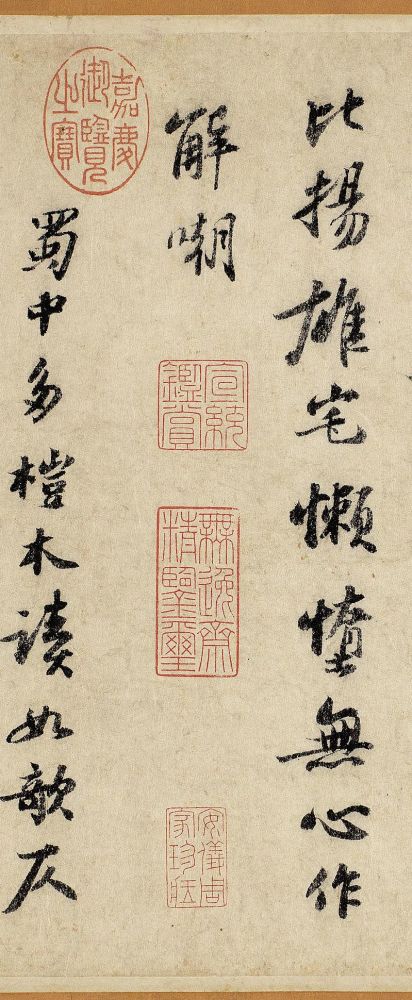 比揚雄宅懶惰無心作
解嘲
宣統
鑑賞
無逸齋
精鑒璽
安儀周
家珍藏
嘉慶
御覽
之寶
蜀中多榿木讀如欹仄